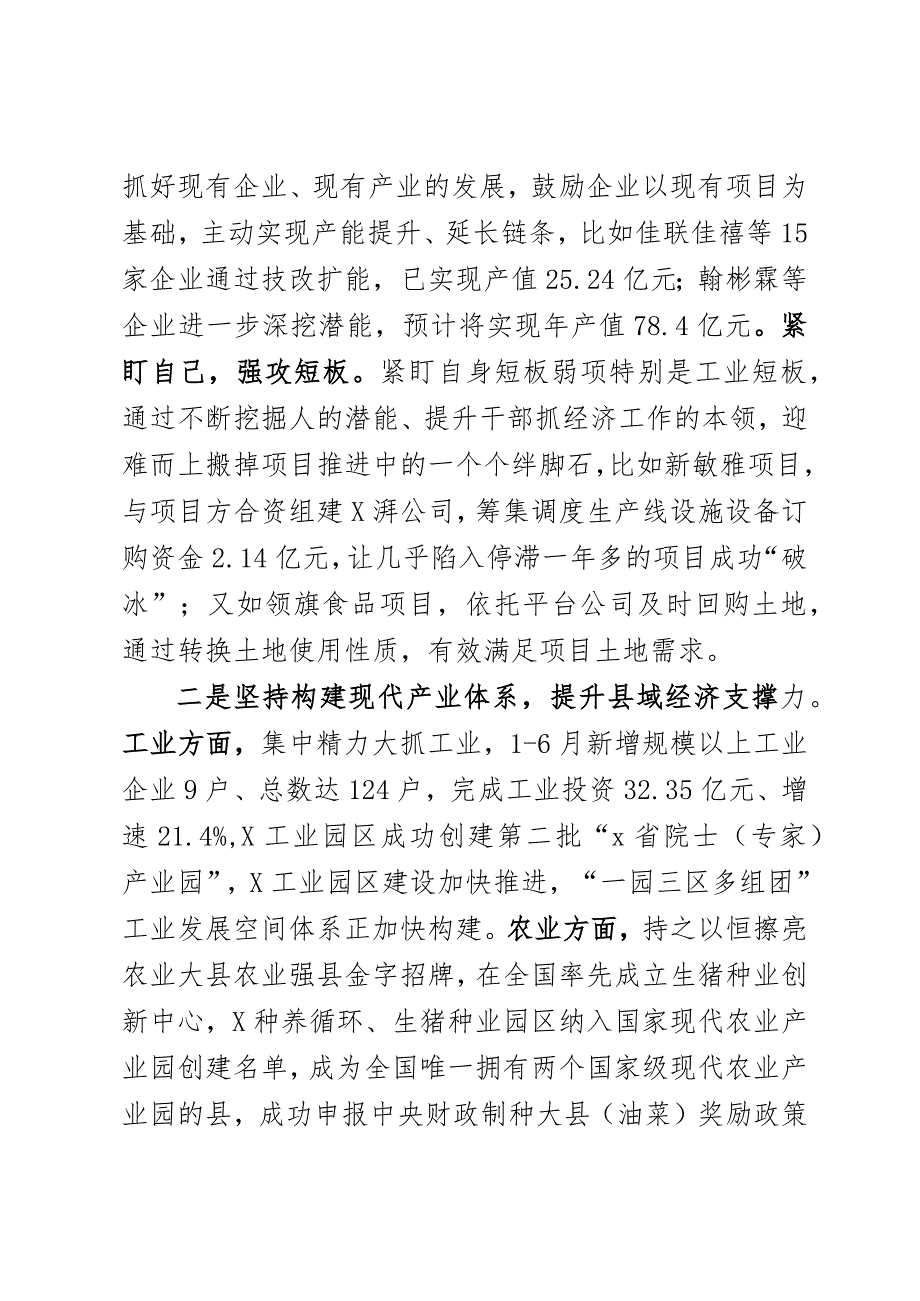 抓好现有企业、现有产业的发展，鼓励企业以现有项目为
基础，主动实现产能提升、延长链条，比如佳联佳禧等 15
家企业通过技改扩能，已实现产值 25.24 亿元；翰彬霖等
企业进一步深挖潜能，预计将实现年产值 78.4 亿元。紧
盯自己，强攻短板。紧盯自身短板弱项特别是工业短板，
通过不断挖掘人的潜能、提升干部抓经济工作的本领，迎
难而上搬掉项目推进中的一个个绊脚石，比如新敏雅项目，
与项目方合资组建 X 湃公司，筹集调度生产线设施设备订
购资金 2.14 亿元，让几乎陷入停滞一年多的项目成功“破
冰”；又如领旗食品项目，依托平台公司及时回购土地，
通过转换土地使用性质，有效满足项目土地需求。
二是坚持构建现代产业体系，提升县域经济支撑力。
工业方面，集中精力大抓工业，1-6 月新增规模以上工业
企业 9 户、总数达 124 户，完成工业投资 32.35 亿元、增
速 21.4%,X 工业园区成功创建第二批“x 省院士（专家）
产业园”，X 工业园区建设加快推进，“一园三区多组团”
工业发展空间体系正加快构建。农业方面，持之以恒擦亮
农业大县农业强县金字招牌，在全国率先成立生猪种业创
新中心，X 种养循环、生猪种业园区纳入国家现代农业产
业园创建名单，成为全国唯一拥有两个国家级现代农业产
业园的县，成功申报中央财政制种大县（油菜）奖励政策